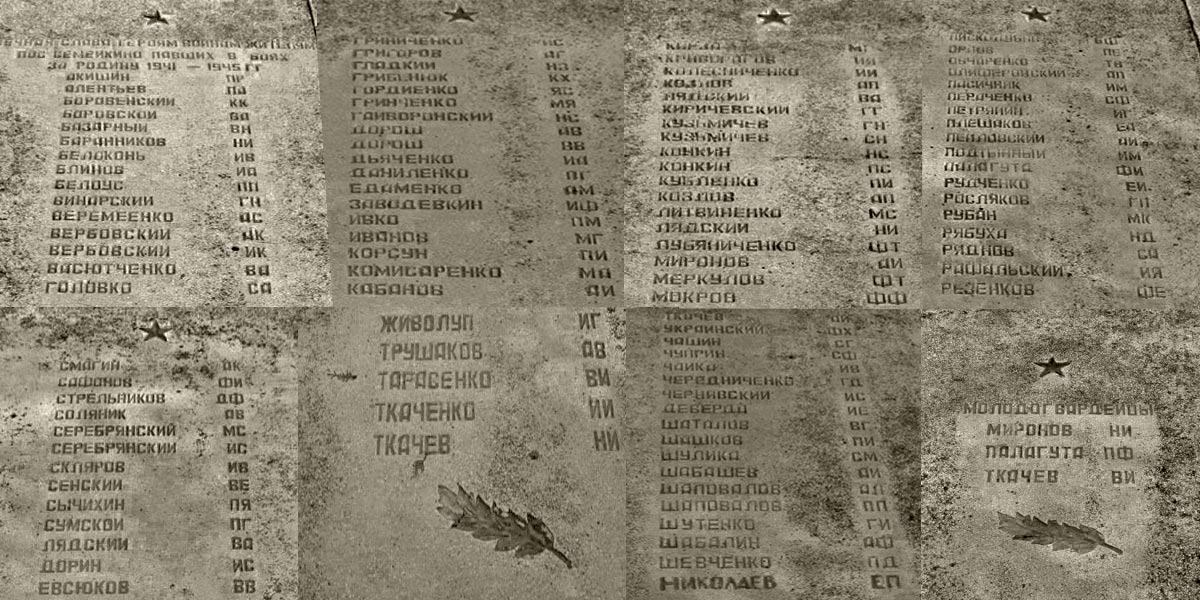 ВЕЧНАЯ СЛАВА ГЕРОЯМ ВОИНАМ ЖИТЕЛЯМ
ПОС СЕМЕЙКИНО ПАВШИХ В БОЯХ
ЗА РОДИНУ 1941 — 1945 ГГ
АКИШИН ПР
АЛЕНТЬЕВ ПА
БОРОВЕНСКИЙ КК
БОРОВСКОЙ ВА
БАЗАРНЫЙ ВН
БАРАННИКОВ НИ
БЕЛОКОНЬ ИВ
БЛИНОВ ИА
БЕЛОУС ПП
ВИНАРСКИЙ ГН
ВЕРЕМЕЕНКО АС
ВЕРБОВСКИЙ АК
ВЕРБОВСКИЙ ИК
ВАСЮТЧЕНКО ВА
ГОЛОВКО СА
ГРИНИЧЕНКО ИС
ГРИГОРОВ АГ
ГЛАДКИЙ НЗ
ГРИБЕНЮК КХ
ГОРДИЕНКО ЯС
ГРИНЧЕНКО МЯ
ГАЙВОРОНСКИЙ НС
ДОРОШ АВ
ДОРОШ ВВ
ДЬЯЧЕНКО ИД
ДАНИЛЕНКО
ЕДАМЕНКО АМ
ЗАВОДЕВКИН ИФ
ИВКО ПМ
ИВАНОВ МГ
КОРСУН ПИ
КОМИСАРЕНКО МА
КАБАНОВ АИ
КРИВОРОГОВ ИЯ
КОЛЕСНИЧЕНКО ИИ
КОЗЛОВ АП
ЛЯДСКИЙ ВА
КИРИЧЕВСКИЙ ГГ
КУЗЬМИЧЕВ ГН
КУЗЬМИЧЕВ СН
КОНКИН НС
КОНКИН ПС
КУБЛЕНКО ПИ
КОЗЛОВ АП
ЛИТВИНЕНКО МС
ЛЯДСКИЙ НИ
ЛУБЯНИЧЕНКО ФТ
МИРОНОВ АИ
МЕРКУЛОВ ФТ
МОКРОВ ФФ
ОРЛОВ
ОЛИФЕРОВСКИЙ АП
ПАСИЧНИК ИМ
ПЕРАЧЕНКО СФ
ПЕТРЯНИН ИГ
ПЛЕШАКОВ
ПЕЙЛОВСКИЙ АИ
ПОДТЫННЫЙ ИМ
ПАЛАГУТА ФИ
РУДЧЕНКО ЕИ
РОСЛЯКОВ ГП
РУБАН МК
РЯБУХА НД
РЯДНОВ СА
РАШАЛЬСКИЙ ИЯ
РЕЗЕНКОВ ФЕ
СМАГИН АК
САФОНОВ ФИ
СТРЕЛЬНИКОВ ДФ
СОЛЯНИК АВ
СЕРЕБРЯНСКИЙ МС
СЕРЕБРЯНСКИЙ ИС
СКЛЯРОВ ИВ
СЕНСКИЙ ВЕ
СЫЧИХИН ПЯ
СУМСКОЙ ПГ
ЛЯДСКИЙ ВА
ДОРИН ИС
ЕВСЮКОВ ВВ
ЖИВОЛУП ИГ
ТРУШАКОВ АВ
ТАРАСЕНКО ВИ
ТКАЧЕНКО ИИ
ТКАЧЕВ НИ
ТКАЧЕВ АИ
УКРАИНСКИЙ ФХ
ЧАШИН СГ
ЧУПРИН СФ
ЧАЙКА ИВ
ЧЕРЕДНИЧЕНКО ГД
ЧЕРНЯВСКИЙ ИС
ДЕБЕРДА ИС
ШАТАЛОВ ВГ
ШАШКОВ ПИ
ШУЛИКА СМ
ШАБАШЕВ АИ
ШАПОВАЛОВ АП
ШАПОВАЛОВ ПП
ШУТЕНКО ГИ
ШАБАЛИН АФ
ШЕВЧЕНКО ПД
НИКОЛАЕВ ЕП
МОЛОДОГВАРДЕЙЦЫ
МИРОНОВ НИ
ПАЛАГУТА ПФ
ТКАЧЕВ ВИ